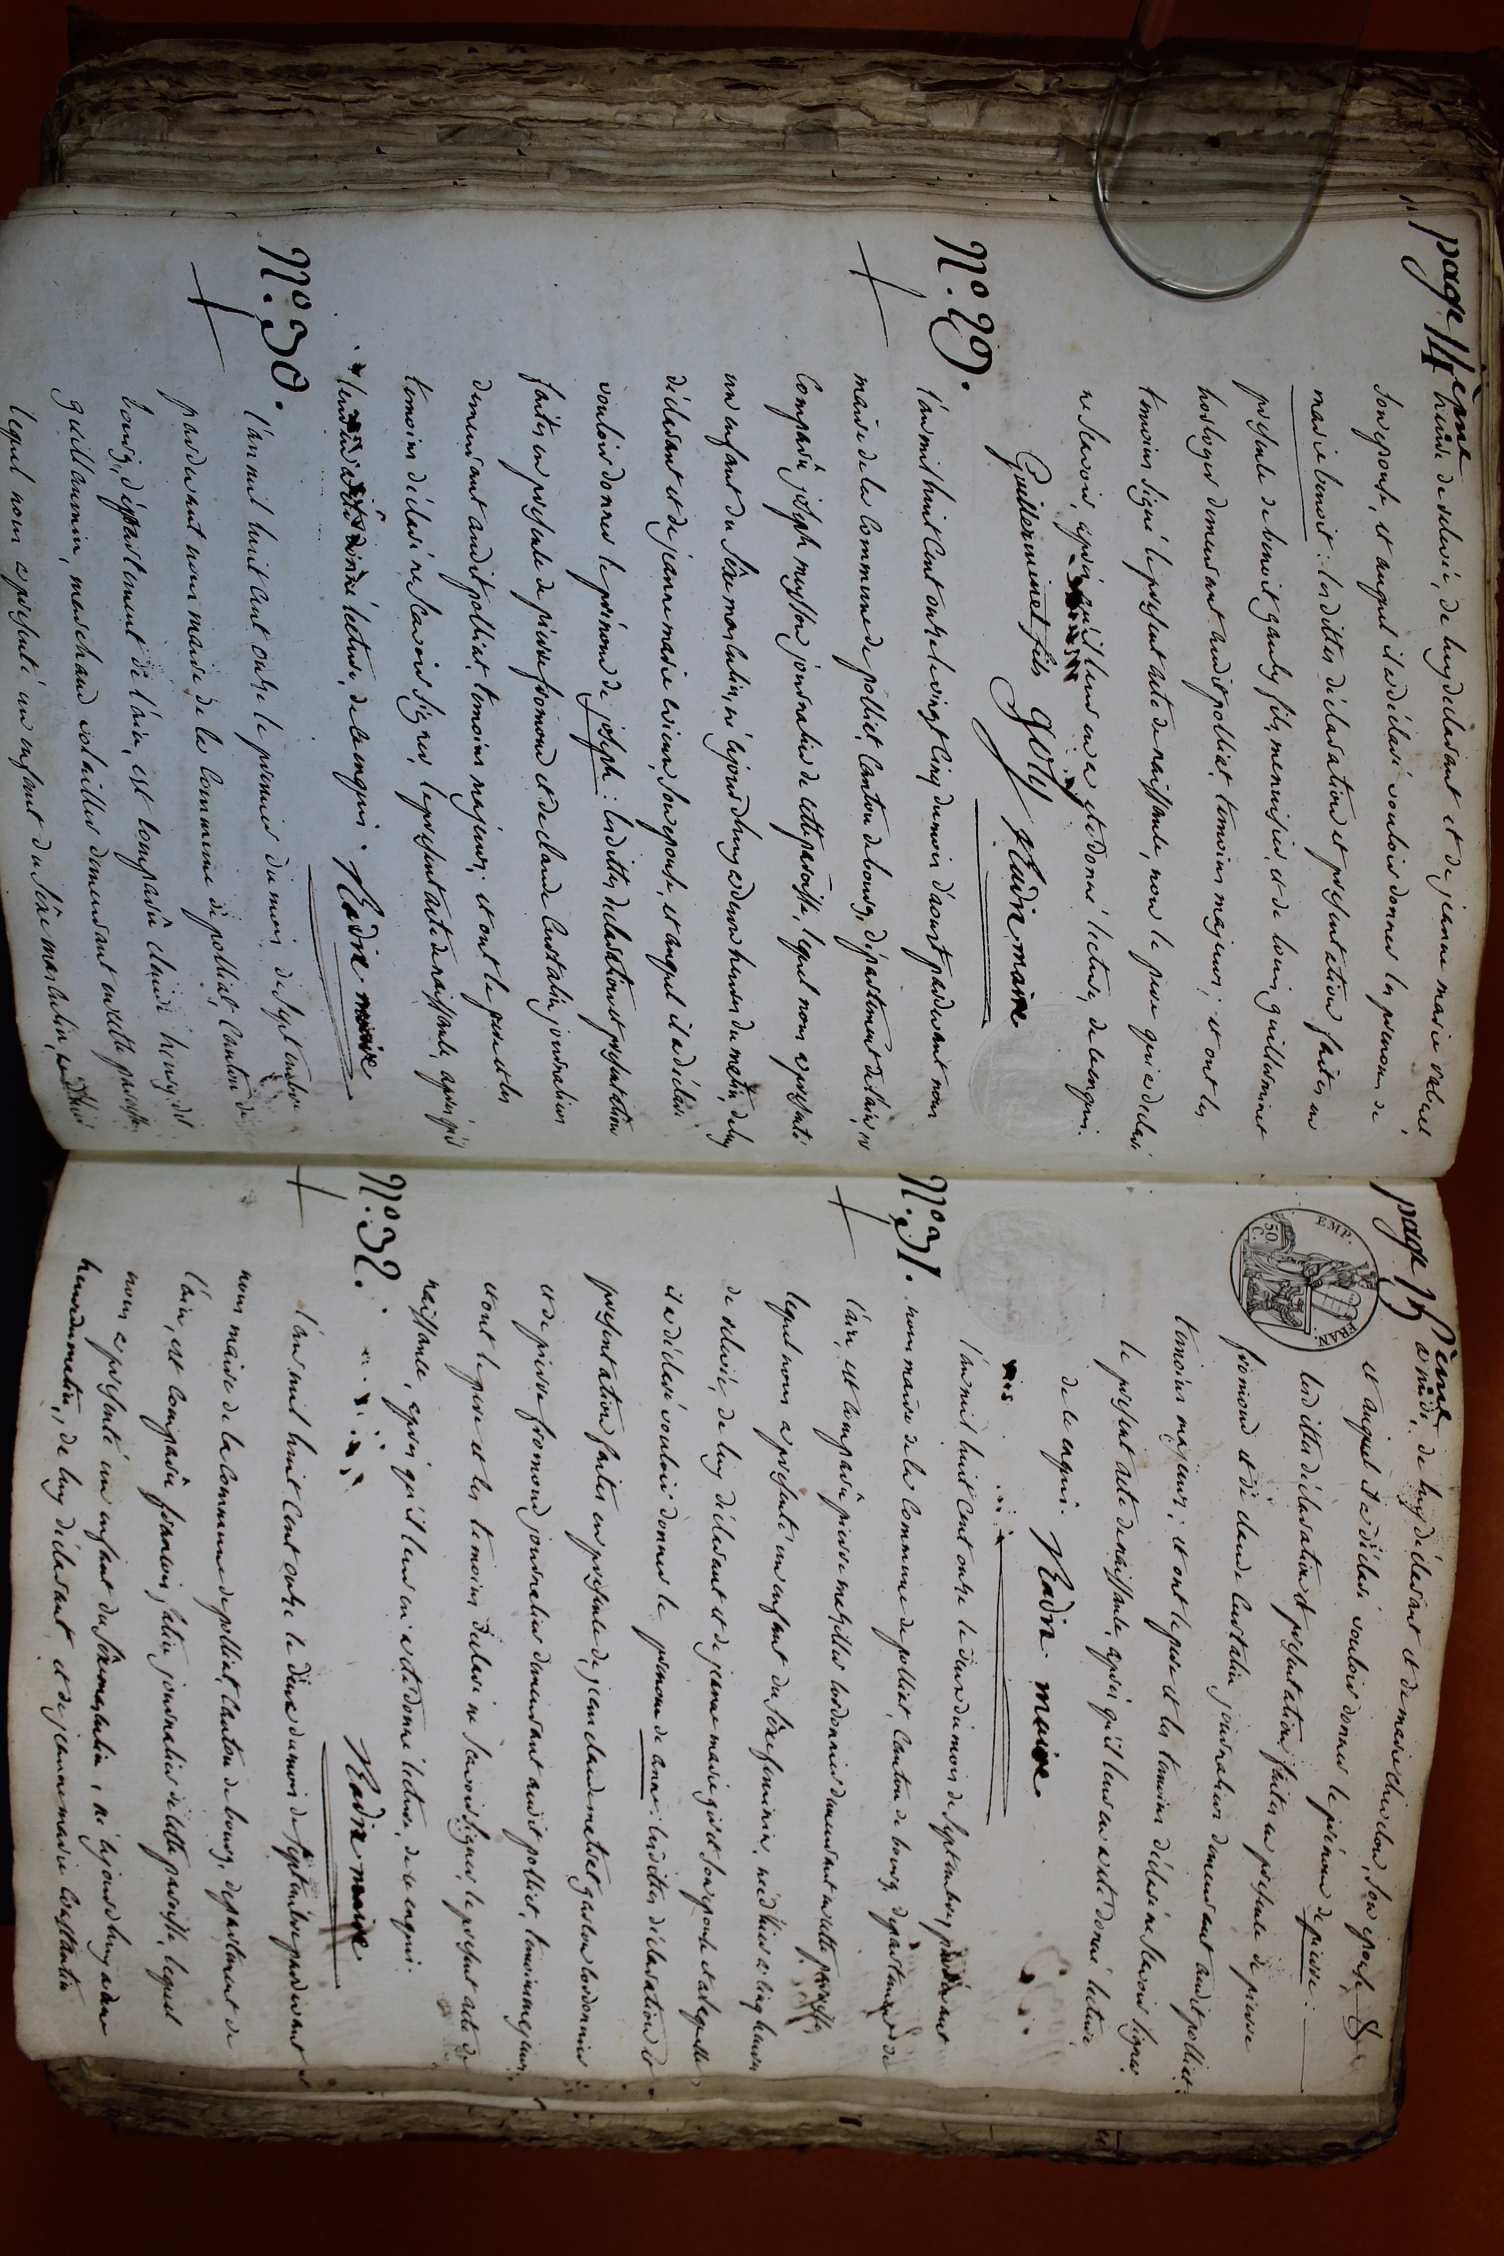 page 14ème
heures de relevée, de luy déclarant et de jeanne marie
son épouse, et auquel il a déclaré vouloir donner les prenoms de
marie benoit : les dittes déclaration et présentation faites en
présence de benoit gauly fils, menuisier, et de louis guillerminet
horloger demeurant audit polliat, temoins majeurs ; et ont les
temoins signé le présent acte de naissance, non le pere qui a déclaré
ne scavoir, après qu'il leur en a été donné lecture, de ce enquis.
Guillerminet fils Goly Radix maire
N.º 29.
l'an mil huit cent onze le vingt cinq du mois d'aoust pardevant nous
maire de la commune de polliat, canton de bourg, département de l'ain, est
comparu joseph journalier de cette paroisse, lequel nous a présenté
un enfant du sèxe masculin, né le jourd'huy a deux heures du matin, de luy
déclarant et de jeanne marie son épouse, et auquel il a déclaré
vouloir donner le prénom de joseph : les dittes déclaration et présentation
faites en présence de pierre fromond et de claude Curtalin journaliers
demeurant audit polliat, temoins majeurs ; et ont le pere et les
temoins déclaré ne scavoir signer le présent acte de naissance, après qu'il
leur en a été donné lecture, de ce enquis. Radix maire
N.º 30.
l'an mil huit cent onze le premier du mois de septembre
pardevant nous maire de la commune de polliat, canton de
bourg, département de l'ain, est comparu claude
guillaumin, marchand volailler demeurant en cette paroisse
lequel nous a présenté un enfant du sèxe masculin,
page 15ème
a midi, de luy déclarant et de marie son épouse,
et auquel il a déclaré vouloir donner le prénom de pierre :
les dittes déclaration et présentation faites en présence de pierre
fromond et de claude Curtalin journaliers demeurant audit polliat,
temoins majeurs ; et ont le pere et les temoins déclaré ne scavoir signer
le présent acte de naissance, après qu'il leur en a été donné lecture,
de ce enquis. Radix maire
EMP. FRAN.
50 C.
N.º 31.
l'an mil huit cent onze le deux du mois de septembre, pardevant
nous maire de la commune de polliat, canton de bourg, département de
l'ain, est comparu pierre cordonnier demeurant en cette paroisse,
lequel nous a présenté un enfant du sèxe feminin, né d'hier a cinq heures
de relevée, de luy déclarant et de jeanne marie son épouse et a laquelle
il a déclaré vouloir donner le prénom de anne : les dittes déclaration et
présentation faites en présence de jean claude cordonnier
et de pierre fromond journalier demeurant audit polliat, temoins majeurs ;
et ont le pere et les temoins déclaré ne scavoir signer le présent acte de
naissance, après qu'il leur en a été donné lecture, de ce enquis.
Radix maire
N.º 32.
l'an mil huit cent onze le deux du mois de septembre pardevant
nous maire de la commune de polliat, canton de bourg, département de
l'ain, est comparu francois journalier de cette paroisse, lequel
nous a présenté un enfant du sèxe masculin, né le jourd'huy a deux
heures du matin, de luy déclarant et de jeanne marie